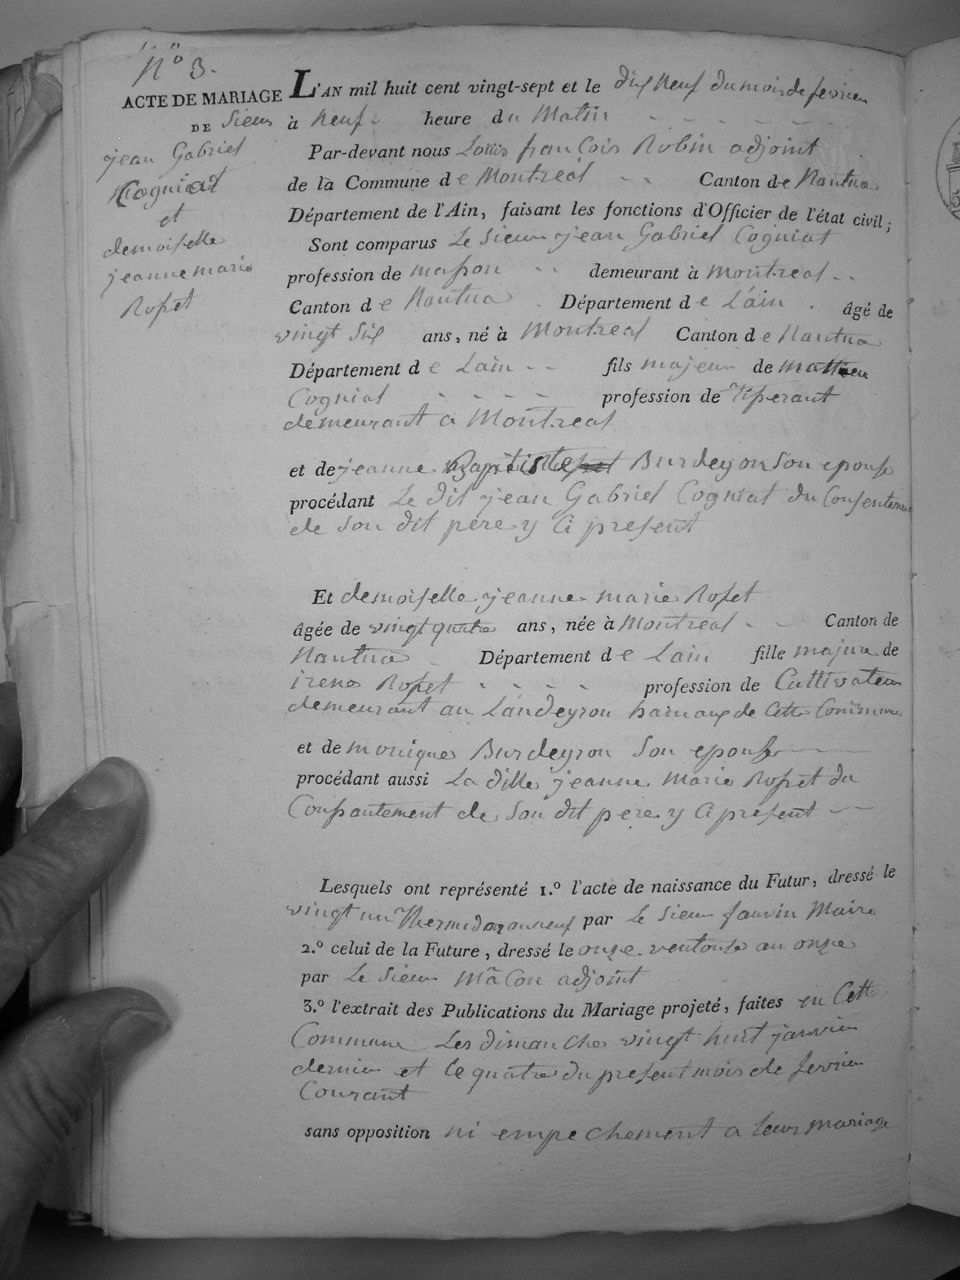 N.o 3.
ACTE DE MARIAGE
DE Sieur
jean Gabriel
Cogniat
et
demoiselle
jeanne marie
Rosset
L'AN mil huit cent vingt-sept et le dix Neuf du mois de fevrier
à Neuf heure du Matin
Par-devant nous Louis francois Robin adjoint
de la Commune de Montreal Canton de Nantua
Département de l'Ain, faisant les fonctions d'Officier de l'état civil;
Sont comparus Le Sieur jean Gabriel Cogniat
profession de masson demeurant à montreal
Canton de Nantua Département de L'ain âgé de
vingt Six ans, né à Montreal Canton de Nantua
Département de Lain fils majeur de mathieu
Cogniat profession de
demeurant a Montreal
et de jeanne Baptiste Burdeyron Son epouse
procédant Le dit jean Gabriel Cogniat du Consentement
de Son dit pere y Ci present
Et demoiselle jeanne marie Rosset
âgée de vingt quatre ans, née à Montreal Canton de
Nantua Département de Lain fille majure de
irene Rosset profession de Cultivateur
demeurant au Landeyron hamaux de Cette Commune
et de monique Burdeyron Son epouse
procédant aussi La ditte jeanne Marie Rosset du
Consantement de Son dit pere y Ci present
Lesquels ont représenté 1.º l'acte de naissance du Futur, dressé le
vingt un Thermidor an neuf par Le Sieur Jauvin Maire
2.º celui de la Future, dressé le onze ventose an onze
par Le Sieur Mâcon adjoint
3.º l'extrait des Publications du Mariage projeté, faites en Cette
Commune Les dimanches vingt huit janvier
dernier et le quatre du present mois de fevrier
Courant
sans opposition ni empechement a leur mariage